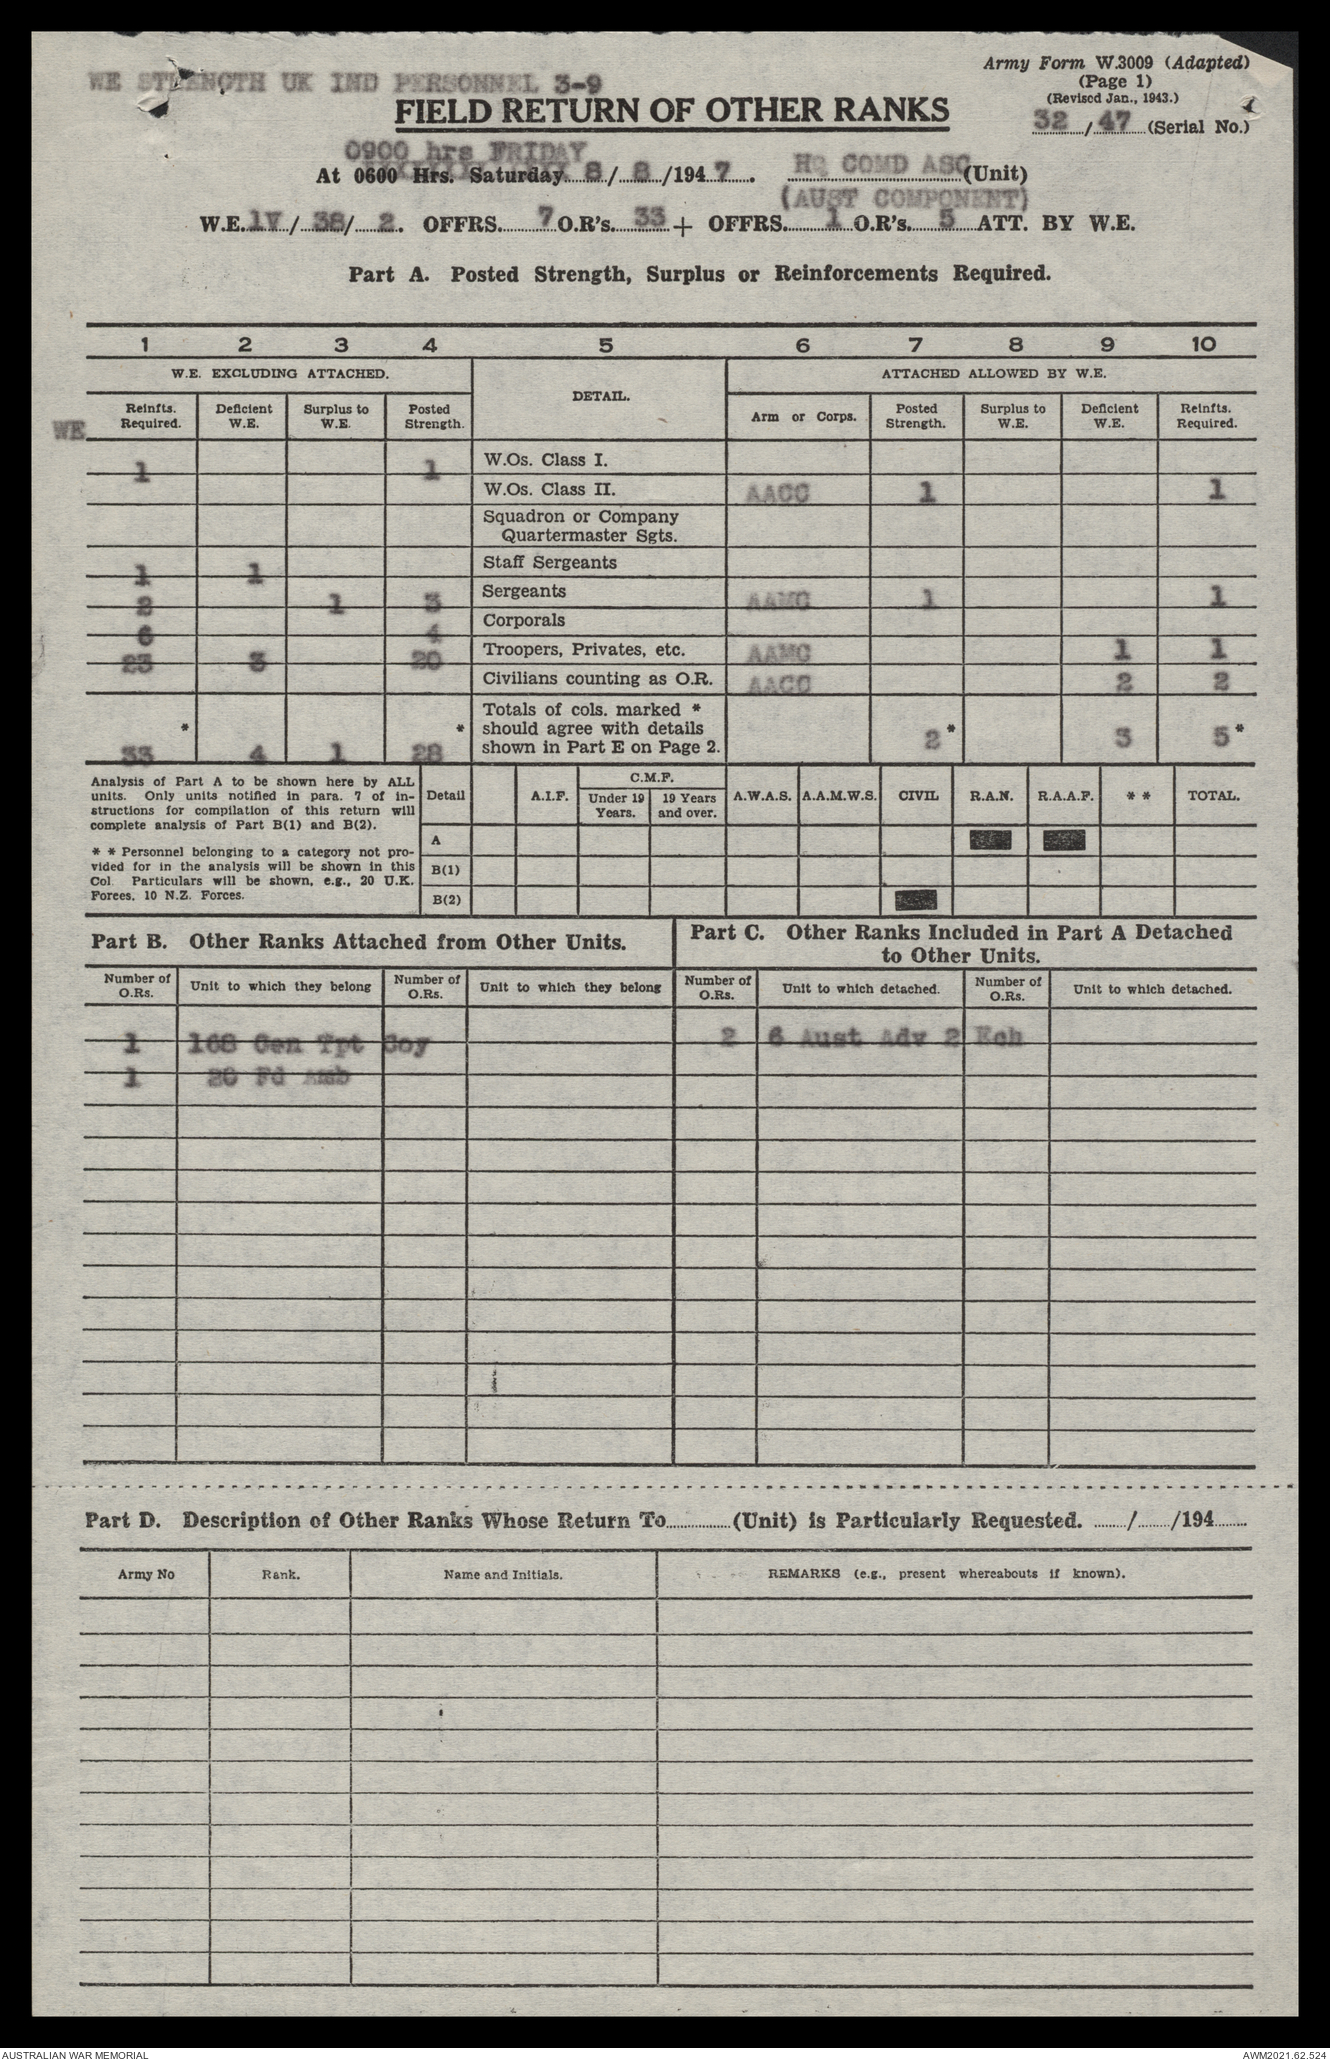 WE STRENGTH UK IND PERSONNEL 3-9
Army Form W.3009 (Adapted)
(Page 1)
(Revised Jan., 1943.)
32/47 (Serial No.)
FIELD RETURN OF OTHER RANKS
0900 hrs FRIDAY
At 0600 Hrs. Saturday 8/8/1947. HQ COMD ASC (Unit)
(AUST COMPONENT)
W.E. 1V/38/2. OFFRS. 7 O.R's. 33 + OFFRS. 1 O.R's. 5 ATT. BY W.E.
Part A. Posted Strength, Surplus or Reinforcements Required.
1 2 3 4 5 6 7 8 9 10
W.E. EXCLUDING ATTACHED. DETAIL. ATTACHED ALLOWED BY W.E.
WE Reinfts. Required. Deficient W.E. Surplus to W.E. Posted Strength. Arm or Corps. Posted Strength. Surplus to W.E. Deficient W.E. Reinfts. Required.
1 1 W.Os. Class I.
W.Os. Class II. AACC 1 1
Squadron or Company
Quartermaster Sgts.
1 1 Staff Sergeants
2 1 3 Sergeants AAMC 1 1
6 4 Corporals
23 3 20 Troopers, Privates, etc. AAMC 1 1
Civilians counting as O.R. AACC 2 2
Totals of cols. marked *
* * should agree with details * *
33 4 1 28 shown in Part E on Page 2. 2 3 5
Analysis of Part A to be shown here by ALL
units. Only units notified in para. 7 of in-
structions for compilation of this return will
complete analysis of Part B(1) and B(2).
* * Personnel belonging to a category not pro-
vided for in the analysis will be shown in this
Col. Particulars will be shown, e.g., 20 U.K.
Forces, 10 N.Z. Forces.
C.M.F.
Detail A.I.F. Under 19 Years. 19 Years and over. A.W.A.S. A.A.M.W.S. CIVIL R.A.N. R.A.A.F. * * TOTAL.
A
B(1)
B(2)
Part B. Other Ranks Attached from Other Units.
Part C. Other Ranks Included in Part A Detached
to Other Units.
Number of O.Rs. Unit to which they belong Number of O.Rs. Unit to which they belong Number of O.Rs. Unit to which detached. Number of O.Rs. Unit to which detached.
1 168 Gen Tpt Coy 2 6 Aust Adv 2 Ech
1 20 Fd Amb
Part D. Description of Other Ranks Whose Return To (Unit) is Particularly Requested. / /194
Army No Rank. Name and Initials. REMARKS (e.g., present whereabouts if known).
AUSTRALIAN WAR MEMORIAL AWM2021.62.524